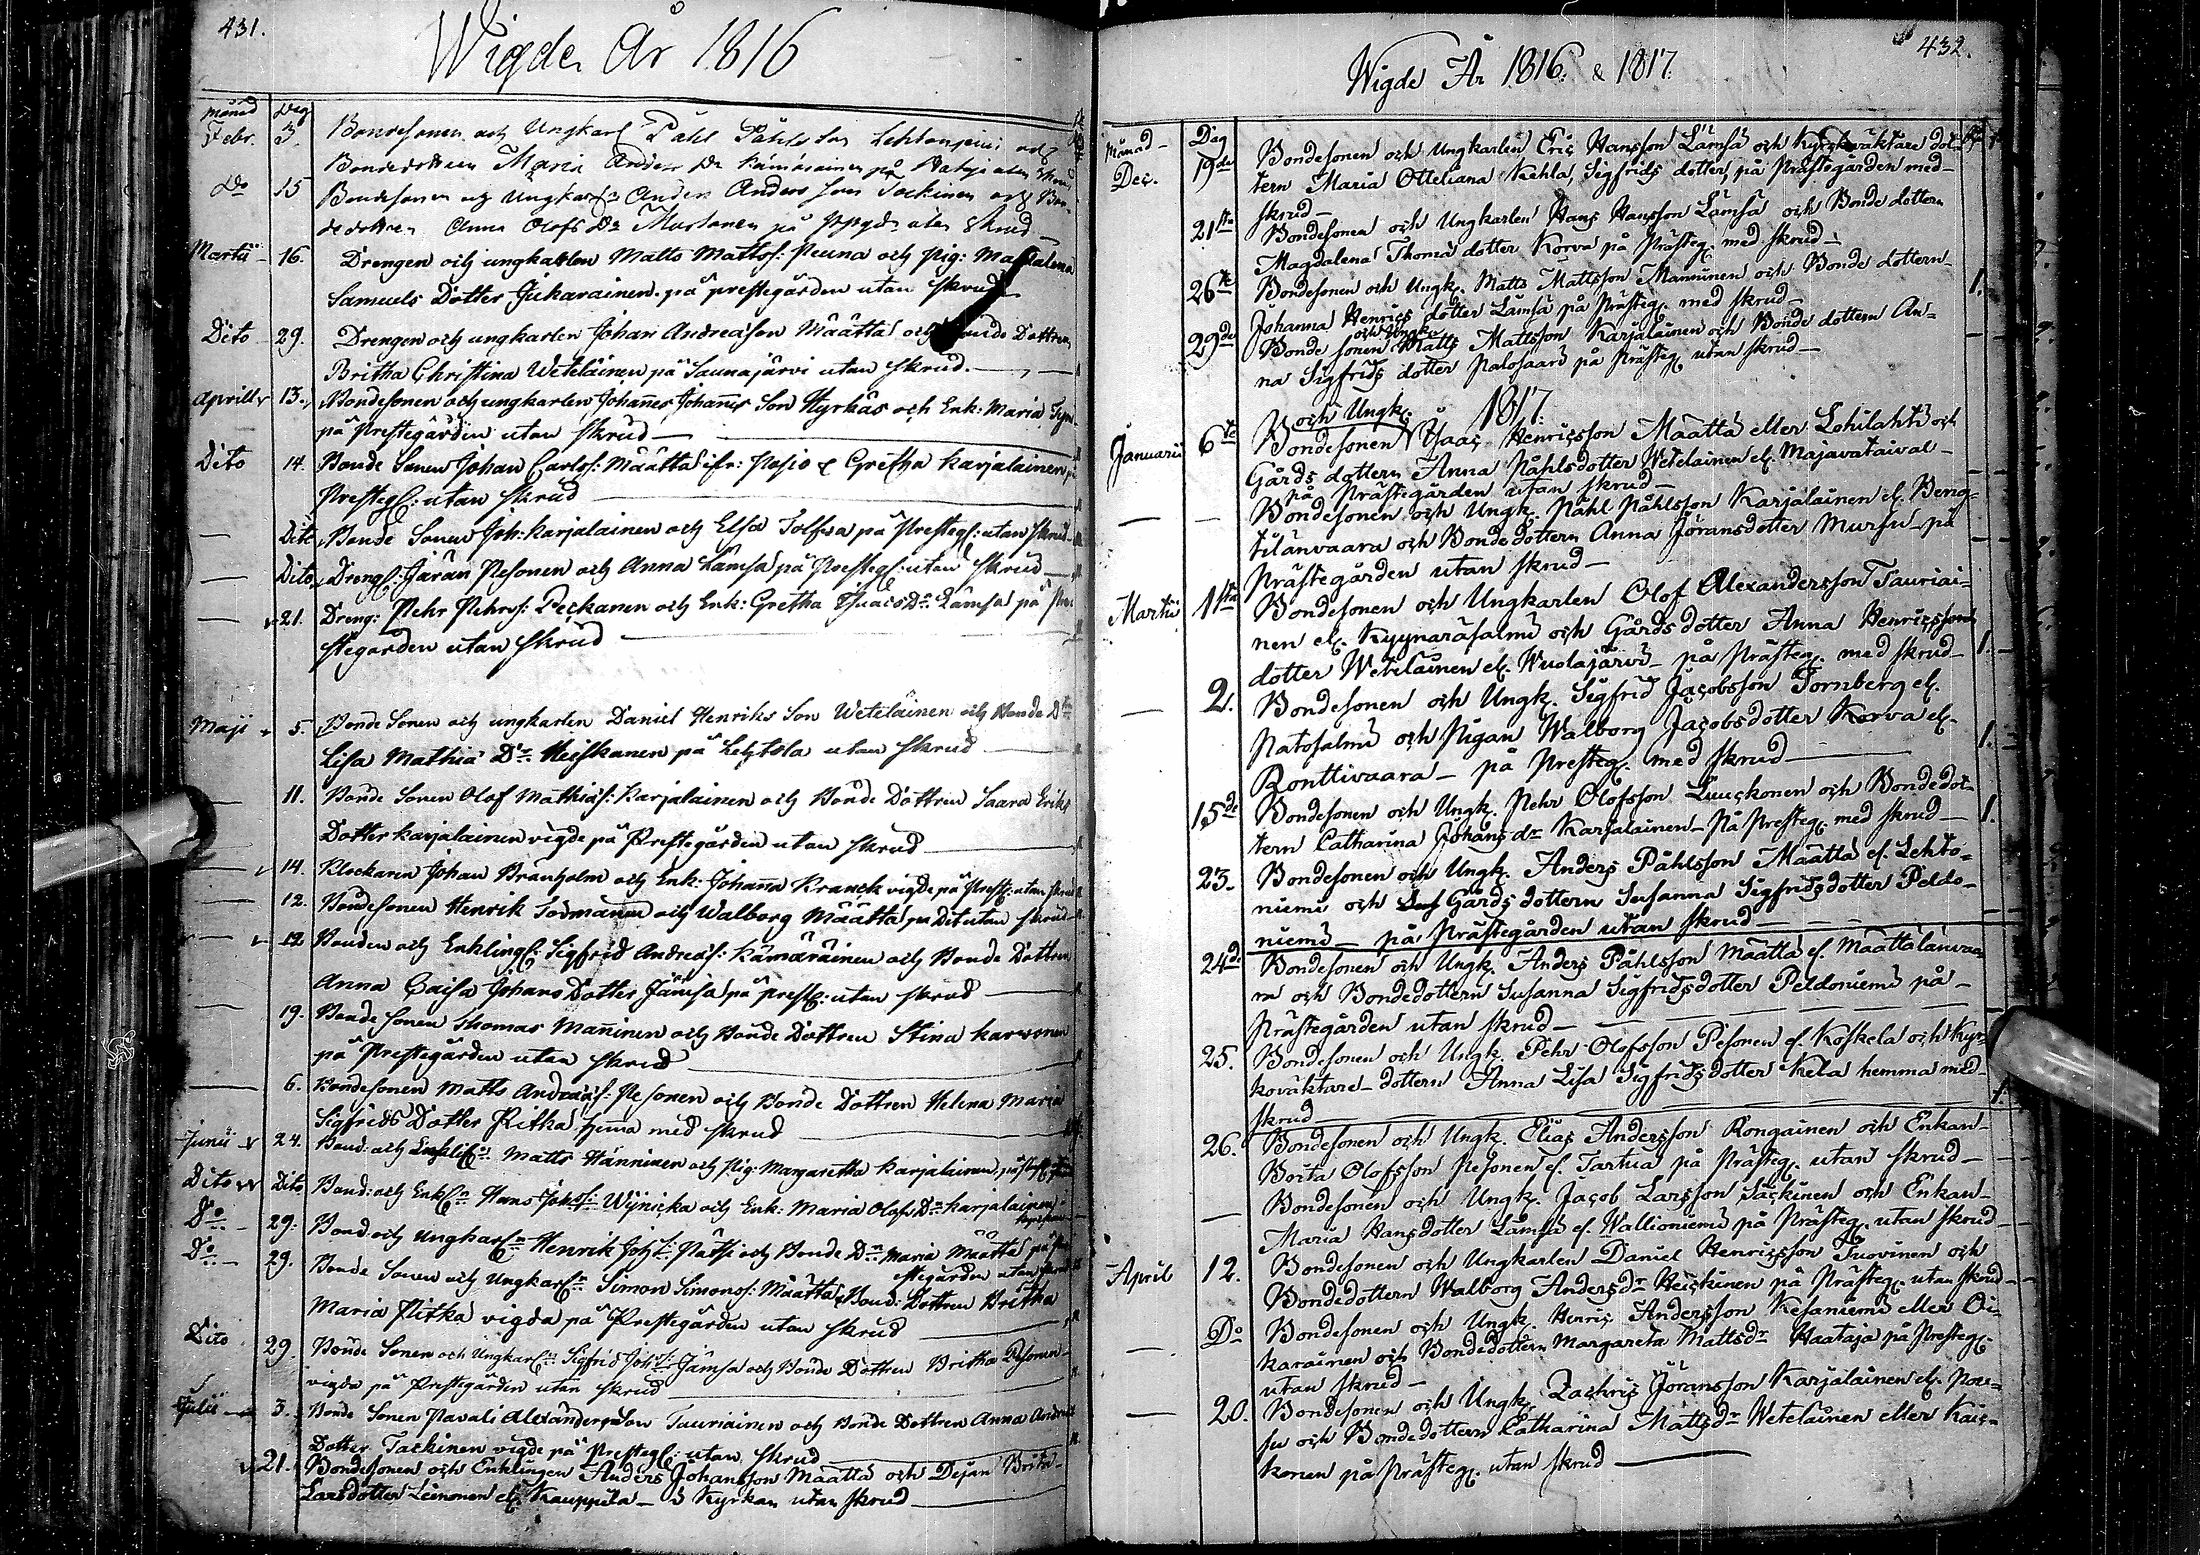 431.
Wigde År 1816
Månad Dag
Febr. 3. Bondesonen och Ungkarl Påhl Påhls Son Lehtoniemi och
Bondedottren Maria Anders Dr Kämäräinen på utan skrud
Do 15 Bondesonen och Ungkarln Anders Anders Son Tackinen och Bon-
dedottren Anna Olofs Dr Mustonen på utan skrud
Martii 16. Drengen och ungkarlen Matts Mattss: Peuna och Pig: Magdalena
Samuels Dotter Jukarainen på prestegården utan skrud
Dito 29. Drengen och ungkarlen Johan Andreasson Määttä och Bonde Dottren
Britha Christina Weteläinen på Saunajärvi utan skrud.
Aprill 13. Bondesonen och ungkarlen Johannes Johannes Son Hyrkäs och Enk: Maria
på Prestegården utan skrud
Dito 14. Bonde Sonen Johan Carlss: Määttä ifr: Posio & Gretha Karjalainen
Presteg: utan skrud
Dito Bonde Sonen Joh: Karjalainen och Elsa Tolfva på Presteg: utan skrud
Dito Dreng: Jöran Pesonen och Anna Lämsä på Presteg: utan skrud
21. Dreng: Pehr Pehrs: Peckanen och Enk: Gretha Isaacs Dr Lämsä på Pre-
stegården utan skrud
Maji 5. Bonde Sonen och ungkarlen Daniel Henriks Son Weteläinen och Bonde Dtr
Lisa Mathiæ Dr Heiskanen på Lehtola utan skrud
11. Bonde Sonen Olof Mathiæs: Karjalainen och Bonde Dottren Saara Eriks
Dotter Karjalainen vigde på Prestegården utan skrud
14. Klockaren Johan Brunholm och Enk: Johanna Kranck vigde på Prest: utan skrud
12. Bondesonen Henrik Sormanen och Walborg Määttä på Dit utan skrud
12 Bonden och Enkling: Sigfrid Andreas: Kämäräinen och Bonde Dottren
Anna Caisa Johans Dotter Jämsä på prest: utan skrud
19. Bonde Sonen Thomas Manninen och Bonde Dottren Stina Karvonen
på Prestegården utan skrud
6. Bondesonen Matts Andreas: Pesonen och Bonde Dottren Helena Maria
Sigfrids Dotter Pitka hemma med skrud
Junii 24. Bond: och Enkli: Matts Hänninen och Pig: Margaretha Karjalainen på
Dito Dito Bond: och Enkln Hans Johs: Wijnicka och Enk: Maria Olofs Dr Karjalainen
Do 29. Bond: och Ungkarln Henrik Johs: Pätsi och Bonde Dr Maria Määttä på Pre-
stegården utan skrud
Do 29. Bonde Sonen och Ungkarln Simon Simons: Määttä & Bond: Dottren Britha
Maria Pitka vigda på Prestegården utan skrud
Dito 29. Bonde Sonen och Ungkarln Sigfrid Johs: Jämsä och Bonde Dottren Britha Pesonen
vigda på Prestegården utan skrud
Julii 3. Bonde Sonen Pavali Alexanders Son Tauriainen och Bonde Dottren Anna Anders
Dotter Tackinen vigde på Presteg: utan skrud
21. Bondesonen och Enklingen Anders Johansson Määttä och Pejan Brita
Larsdotter Leinonen el. Kauppila – i Kyrkan utan skrud
432.
Wigde År 1816. & 1817.
Månad Dag
Dec. 19de Bondesonen och Ungkarlen Eric Hansson Lämsä och Kyrckväktare dot-
tern Maria Otteliana Kehla, Sigfrids dotter, på Prästegården med
skrud
21sta Bondesonen och Ungkarlen Hans Hansson Lämsä och Bonde dottern
Magdalena Thomæ dotter Korva på Prästeg. med skrud
26te Bondesonen och Ungk. Matts Mattsson Manninen och Bonde dottern 1.
Johanna Henrics dotter Lämsä på Prästeg. med skrud
29de Bonde sonen och Ungk. Matts Mattsson Karjalainen och Bonde dottern An-
na Sigfrids dotter Palosaari på Prästeg utan skrud
1817.
Januarii 6te Bondesonen och Ungk. Isaac Henricsson Määttä eller Lohilahti och
Gårds dottern Anna Påhlsdotter Weteläinen el. Majavataival
på Prästegården utan skrud
Bondesonen och Ungk. Påhl Påhlsson Karjalainen el. Beng-
tilänvaara och Bondedottern Anna Jöransdotter Mursu på
Prästegården utan skrud
Martii 1sta Bondesonen och Ungkarlen Olof Alexandersson Tauriai-
nen el. Kyynäräsalmi och Gårdsdotter Anna Henricssons
dotter Weteläinen el. Wuolajärvi på Prästeg. med skrud 1.
2. Bondesonen och Ungk. Sigfrid Jacobsson Tornberg el.
Patosalmi och Pigan Walborg Jacobsdotter Korva el.
Ronttivaara – på Presteg. med skrud 1.
15de Bondesonen och Ungk. Pehr Olofsson Luuckonen och Bondedot-
tern Catharina Johans dr Karjalainen på Presteg. med skrud 1.
23. Bondesonen och Ungk. Anders Påhlsson Määttä el. Lehto-
niemi och Gårds dottern Susanna Sigfridsdotter Peldo-
niemi – på Prästegården utan skrud
24de Bondesonen och Ungk. Anders Påhlsson Määttä el. Määttälänvaa-
ra och Bondedottern Susanna Sigfridsdotter Peldoniemi på
Prästegården utan skrud
25. Bondesonen och Ungk. Pehr Olofsson Pesonen el. Koskela och Kyr-
koväktare dottern Anna Lisa Sigfridsdotter Kela hemma med
skrud 1.
26. Bondesonen och Ungk. Elias Andersson Rongainen och Enkan
Brita Olofsson Pesonen el. Tartua på Prästeg. utan skrud
Bondesonen och Ungk. Jacob Larsson Säckinen och Enkan
Maria Hansdotter Lämsä el. Wallioniemi på Prästeg. utan skrud
April 12. Bondesonen och Ungkarlen Daniel Henricsson Tuovinen och
Bondedottern Walborg Andersdr Heickinen på Prästeg. utan skrud
Do Bondesonen och Ungk. Henric Andersson Kesäniemi eller Oi-
karainen och Bondedottern Margareta Mattsdr Haataja på Presteg.
utan skrud
20. Bondesonen och Ungk. Zachris Jöransson Karjalainen el. Pou-
su och Bondedottern Catharina Mattsdr Weteläinen eller Kais-
konen på Prästeg. utan skrud